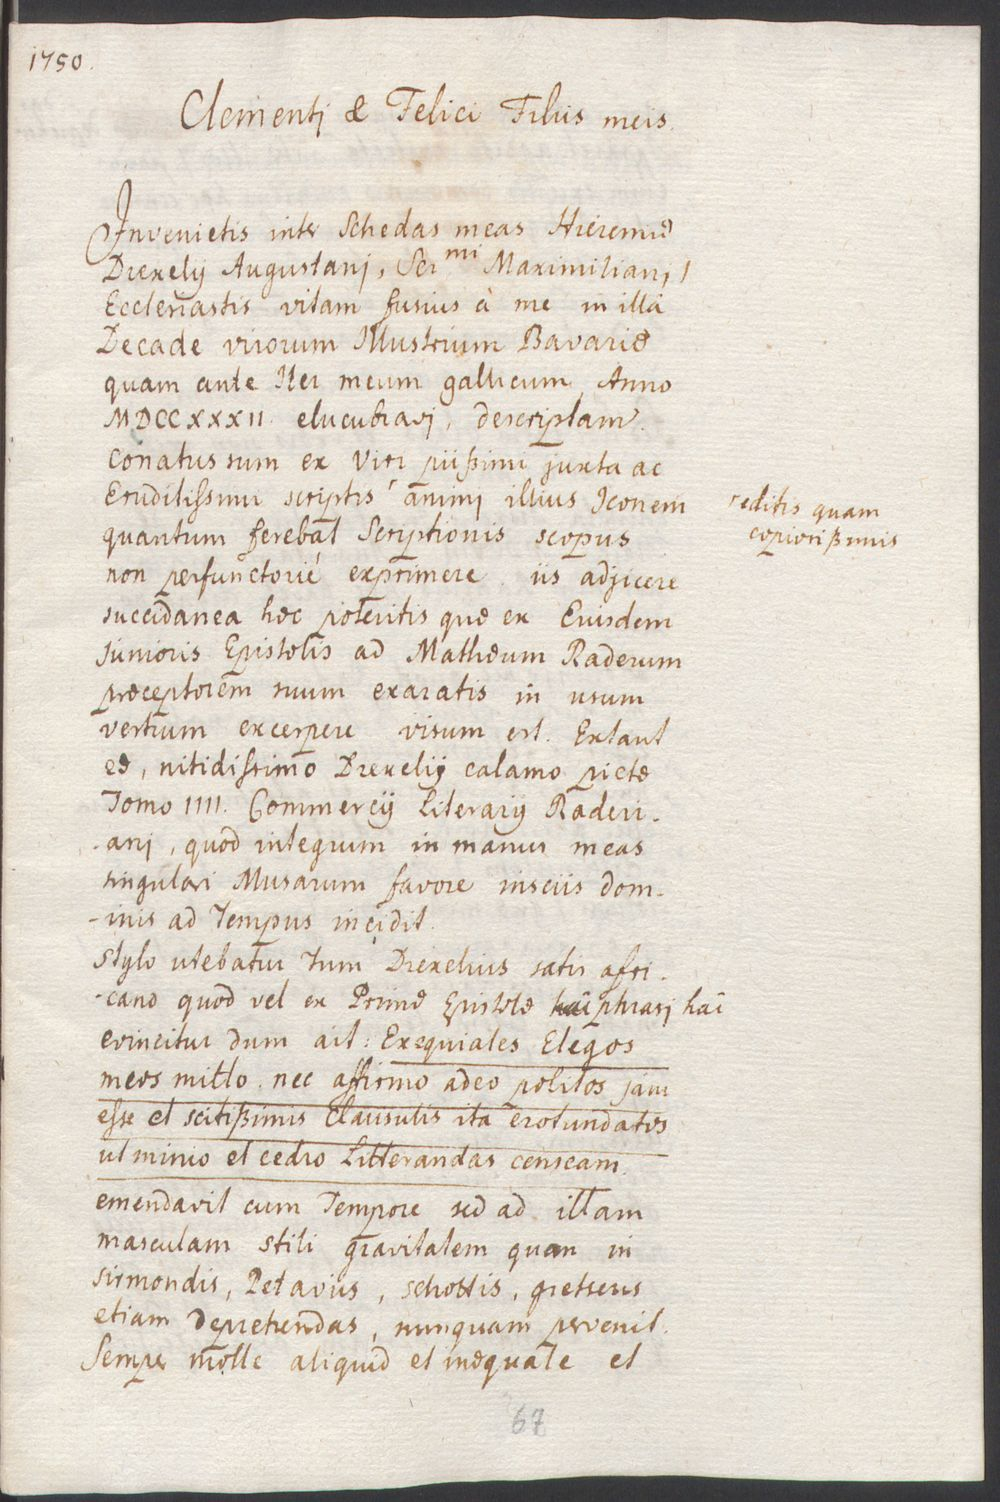 1750.
Clementj & Felici Filiis meis.
Invenietis inter Schedas meas Hieremiæ
Drexelij Augustanj, Ser.mi Maximilianj, I
Ecclesiastis vitam fusius à me in illâ
Decade virorum Illustrium Bavariæ
quam ante Iter meum gallicum Anno
MDCCXXXII. elucubravj, descriptam.
Conatus sum ex Viri piißimi juxta ac
Eruditissimi scriptis animj illius Iconem
reditis quam
copiosißimis
quantum ferebat Scriptionis scopus
non perfunctoriè exprimere. iis adjicere
succidanea hæc poteritis quæ ex Eiusdem
junioris Epistolis ad Mathæum Raderum
præceptorem suum exaratis in usum
vestrum excerpere visum est. Extant
eæ, nitidissimo Drexelij calamo pictæ
Tomo IIII. Commercij Literarij Raderi-
-anj, quod integrum in manus meas
singulari Musarum favore insciis dom-
-inis ad Tempus incidit.
Stylo utebatur tum Drexelius satis afri-
-cano quod vel ex Primæ Epistolæ phrasj hac
evincitur dum ait: Exequiales Elegos
meos mitto. nec affirmo adeo politos jam
esse et scitißimis Clausulis ita erotundatos
ut minio et cedro Litterandas censeam.
emendavit cum Tempore sed ad illam
masculam stili gravitatem quam in
sirmondis, Petaviis, schottis, gretseris
etiam deprehendas, nunquam pervenit.
Semper molle aliquid et inæquale et
67